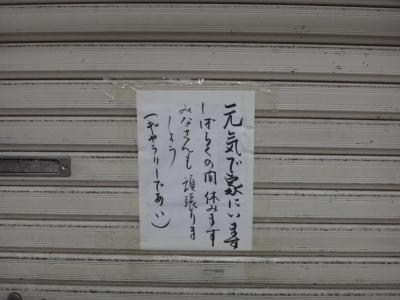 元気で家にいます
しばらくの間休みます
みなさんも頑張りま
しょう
（ギャラリーであい）